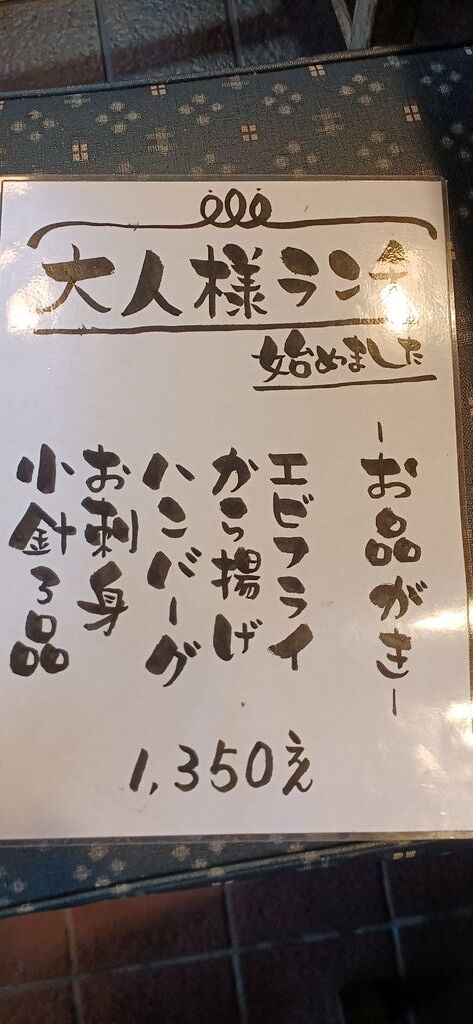 大人様ランチ
始めました
-お品がき-
エビフライ
から揚げ
ハンバーグ
お刺身
小針3品
1,350えん